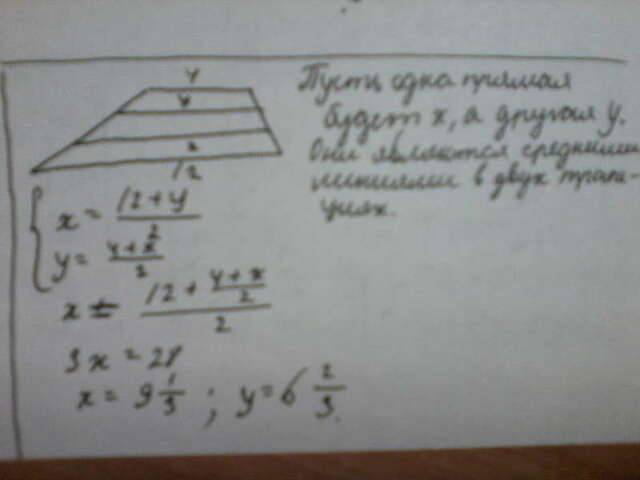 4
y
x
12
Пусть одна прямая
будет x, а другая y.
Они являются средними
линиями в двух трапе-
циях.
x = 12+y / 2
y = 4+x / 2
x = 12 + 4+x / 2 / 2
3x = 28
x = 9 1/3 ; y = 6 2/3